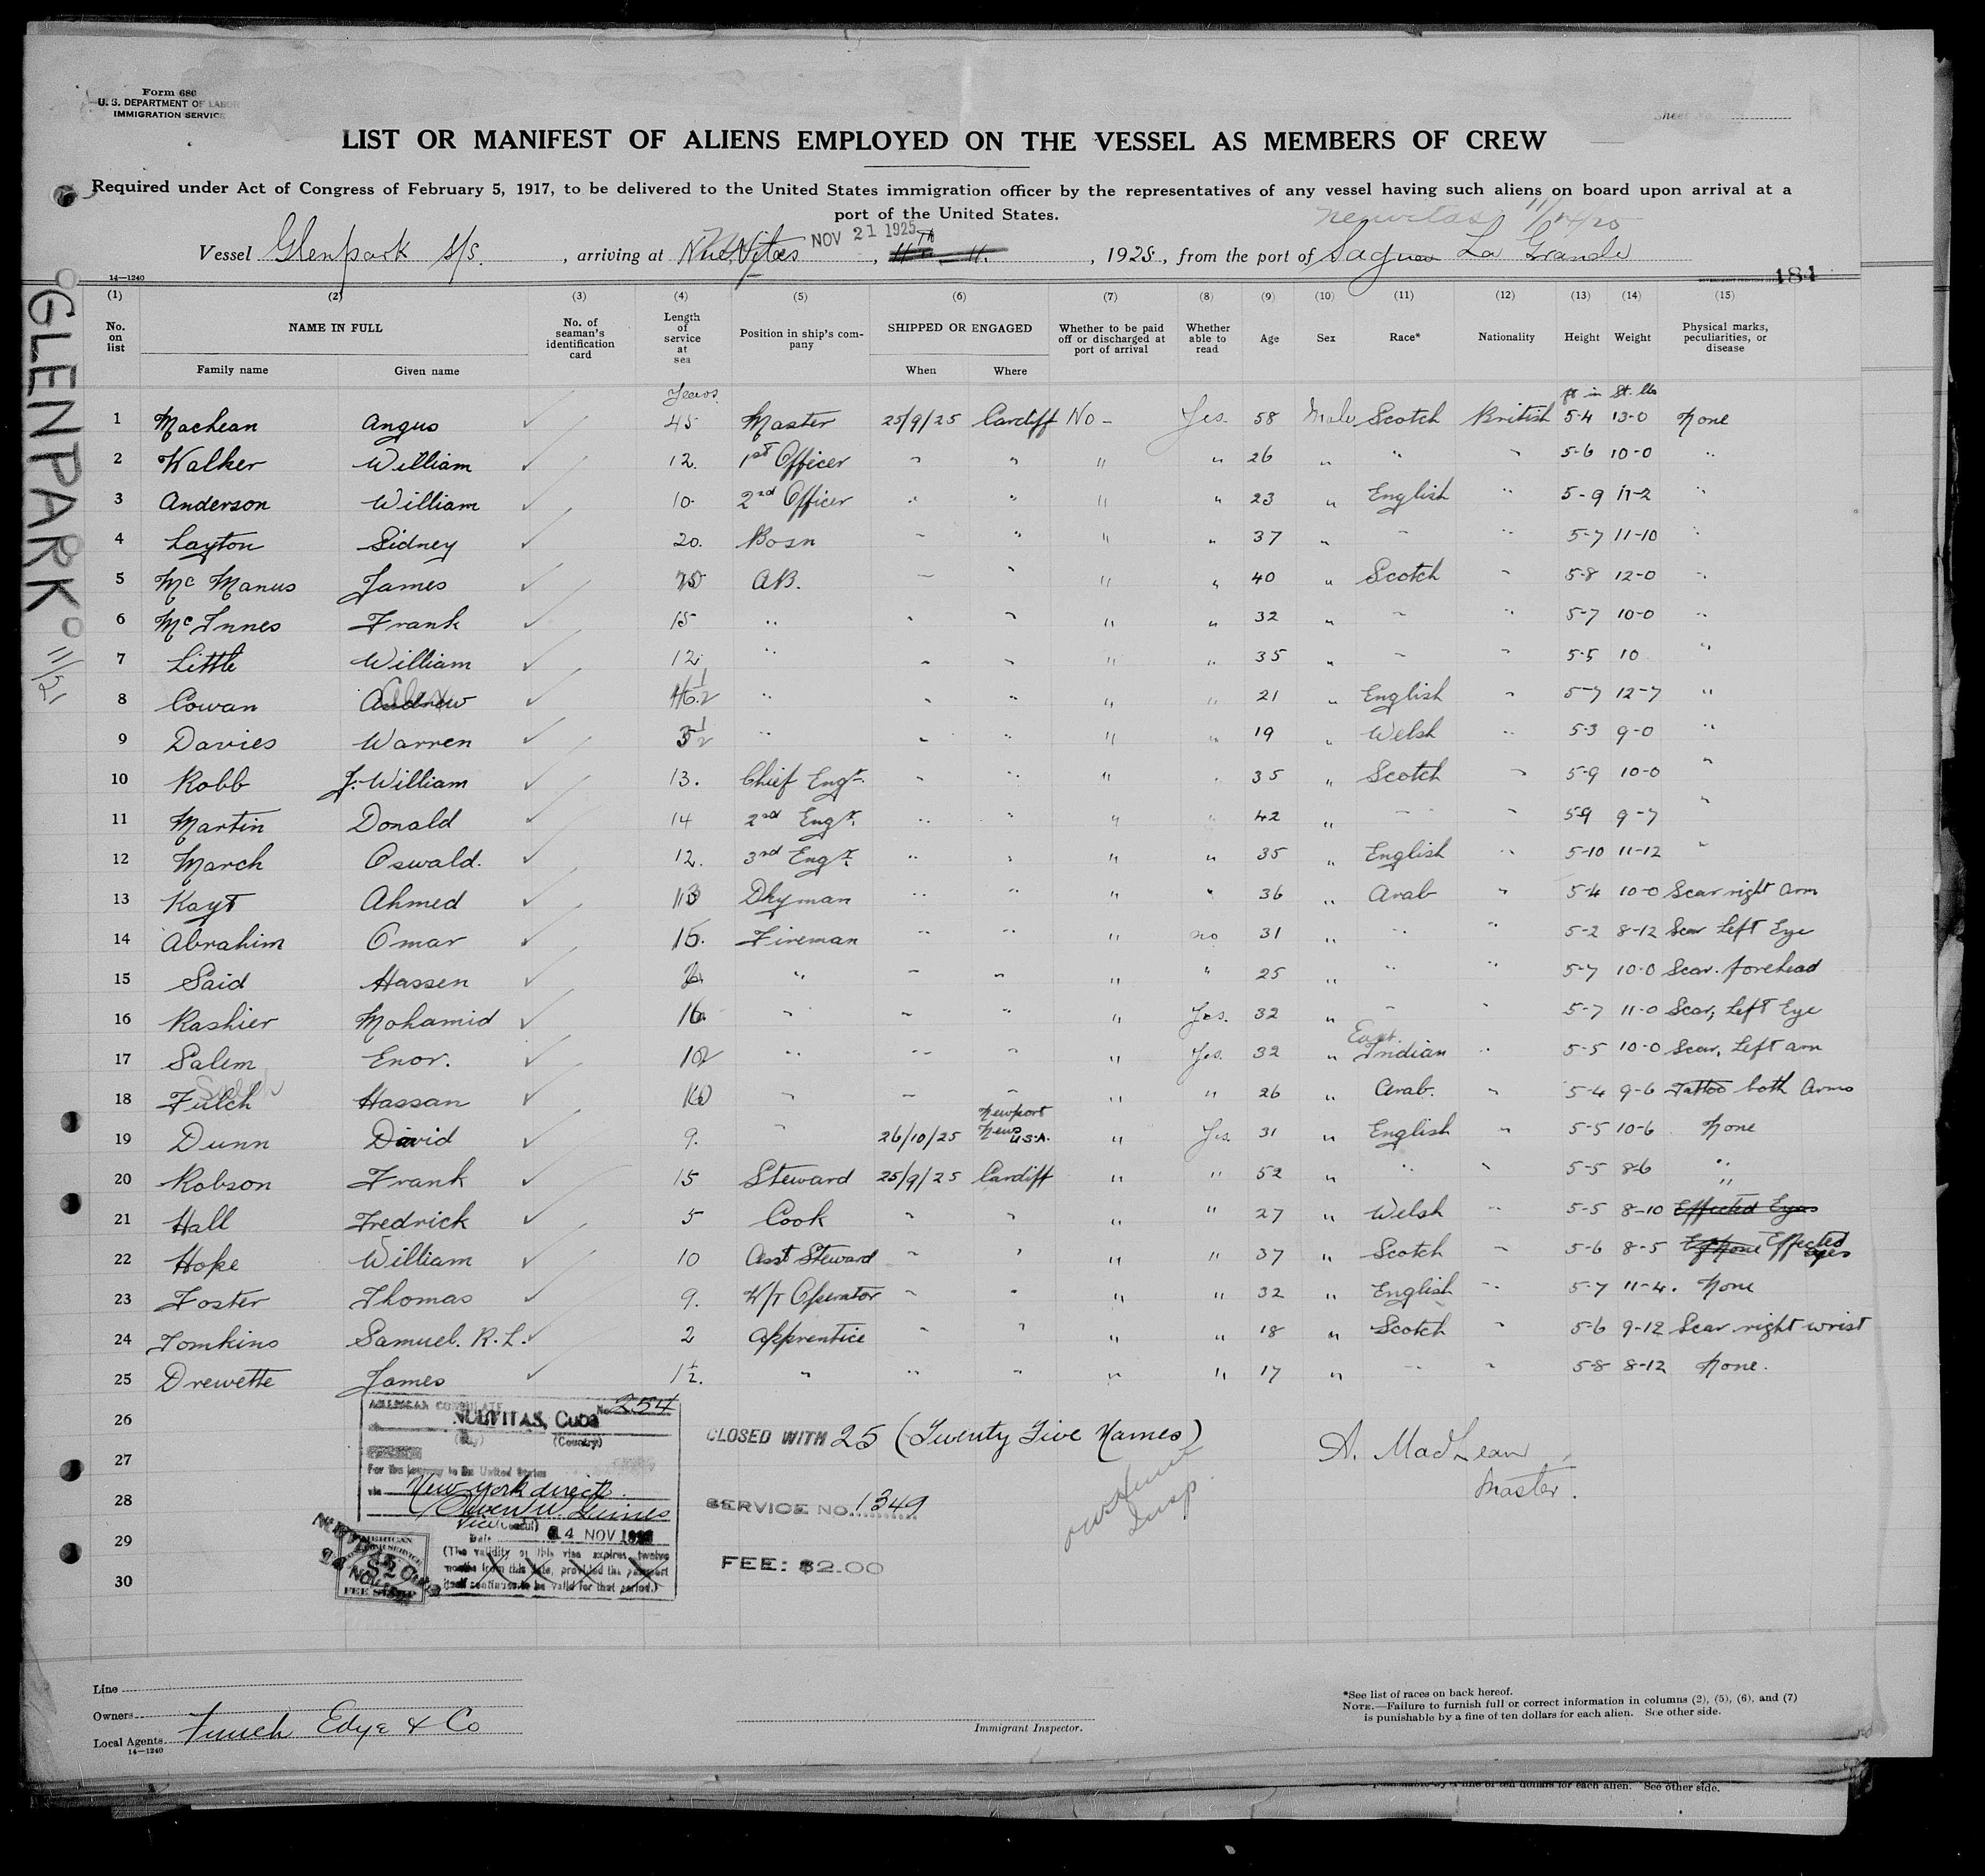 Form 686
U. S. DEPARTMENT OF LABOR
IMMIGRATION SERVICE
Sheet No.
LIST OR MANIFEST OF ALIENS EMPLOYED ON THE VESSEL AS MEMBERS OF CREW
Required under Act of Congress of February 5, 1917, to be delivered to the United States immigration officer by the representatives of any vessel having such aliens on board upon arrival at a
port of the United States.
Nuevitas 11/14/25
Vessel Glenpark S/S. , arriving at NueVitas NOV 21 1925 , 1925, from the port of Sagua La Grande
14—1240
181
(1) (2) (3) (4) (5) (6) (7) (8) (9) (10) (11) (12) (13) (14) (15)
No. on list NAME IN FULL No. of seaman's identification card Length of service at sea Position in ship's company SHIPPED OR ENGAGED Whether to be paid off or discharged at port of arrival Whether able to read Age Sex Race* Nationality Height Weight Physical marks, peculiarities, or disease
Family name Given name When Where
Years ft in St. lbs
1 MacLean Angus 45 Master 25/9/25 Cardiff No - Yes. 58 Male Scotch British 5-4 13-0 None
2 Walker William 12. 1st Officer " " " " 26 " " " 5-6 10-0 "
3 Anderson William 10. 2nd Officer " " " " 23 " English " 5-9 11-2 "
4 Layton Sidney 20. Bosn " " " " 37 " " " 5-7 11-10 "
5 Mc Manus James AB. " " " " 40 " Scotch " 5-8 12-0 "
6 Mc Innes Frank 15 " " " " " 32 " " " 5-7 10-0 "
7 Little William 12 " " " " " 35 " " " 5-5 10 "
8 Cowan Andrew Alex " " " " " 21 " English " 5-7 12-7 "
9 Davies Warren 3½ " " " " " 19 " Welsh " 5-3 9-0 "
10 Robb J. William 13. Chief Engr. " " " " 35 " Scotch " 5-9 10-0 "
11 Martin Donald 14 2nd Engr. " " " " 42 " " " 5-9 9-7 "
12 March Oswald. 12. 3rd Engr. " " " " 35 " English " 5-10 11-12 "
13 Kayt Ahmed 13 Dkyman " " " " 36 " Arab " 5-4 10-0 Scar right arm
14 Abrahim Omar 15. Fireman " " " no 31 " " " 5-2 8-12 Scar Left Eye
15 Said Hassen " " " " " 25 " " " 5-7 10-0 Scar. forehead
16 Rashier Mohamid 16 " " " " Yes. 32 " " " 5-7 11-0 Scar, Left Eye
17 Salem Enor. 12 " " " " Yes. 32 " East. Indian " 5-5 10-0 Scar, Left arm
18 Fulch Hassan 10 " " " " " 26 " Arab. " 5-4 9-6 Tattoo both Arms
19 Dunn David 9. " 26/10/25 Newport News U.S.A. " Yes. 31 " English " 5-5 10-6 None
20 Robson Frank 15 Steward 25/9/25 Cardiff " " 52 " " " 5-5 8-6 "
21 Hall Fredrick 5 Cook " " " " 27 " Welsh " 5-5 8-10 Effected Eyes "
22 Hope William 10 Asst Steward " " " " 37 " Scotch " 5-6 8-5 None Effected eyes
23 Foster Thomas 9. W/T Operator " " " " 32 " English " 5-7 11-4. None
24 Tomkins Samuel. R. L. 2 Apprentice " " " " 18 " Scotch " 5-6 9-12 Scar right wrist
25 Drewette James 1½. " " " " " 17 " " " 5-8 8-12 None.
26
27
28
29
30
GLENPARK
11/21
AMERICAN CONSULATE No. 254
NUEVITAS, Cuba
(City) (Country)
For the journey to the United States
via New York direct.
Vice Consul
Date 14 NOV 1925
(The validity of this visa expires twelve
months from this date, provided the passport
itself continues to be valid for that period.)
AMERICAN
SERVICE
$2
FEE STAMP
CLOSED WITH 25 (Twenty Five Names)
SERVICE NO. 1349
FEE: $2.00
Insp
A. MacLean
Master.
Line
Owners
Local Agents Funch Edye & Co
14—1240
Immigrant Inspector.
*See list of races on back hereof.
NOTE.—Failure to furnish full or correct information in columns (2), (5), (6), and (7)
is punishable by a fine of ten dollars for each alien. See other side.
punishable by a fine of ten dollars for each alien. See other side.